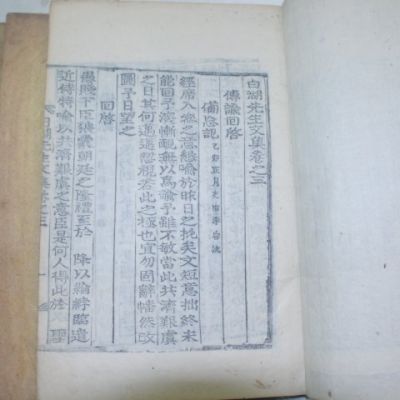 白湖先生文集卷之三
傳諭回啓
備忘記 乙卯正月
經席入參之意緣諭於昨日之批矣文短意拙終未
能回予深慚靦無以爲諭予雖不敏當此共濟艱虞
之日其何邁邁恝視若此之極也宜勿固辭幡然改
圖予日望之
回啓
賤臣猥蒙朝廷之隆禮至於 降以綸綍臨遣
近侍特喩以共濟艱虞之意臣是何人得此於 聖
白湖先生文集卷之三